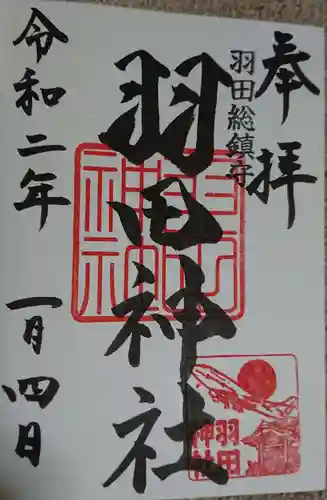 奉拝
羽田総鎮守
羽田神社
令和二年
一月四日
羽田神社
羽田
神社